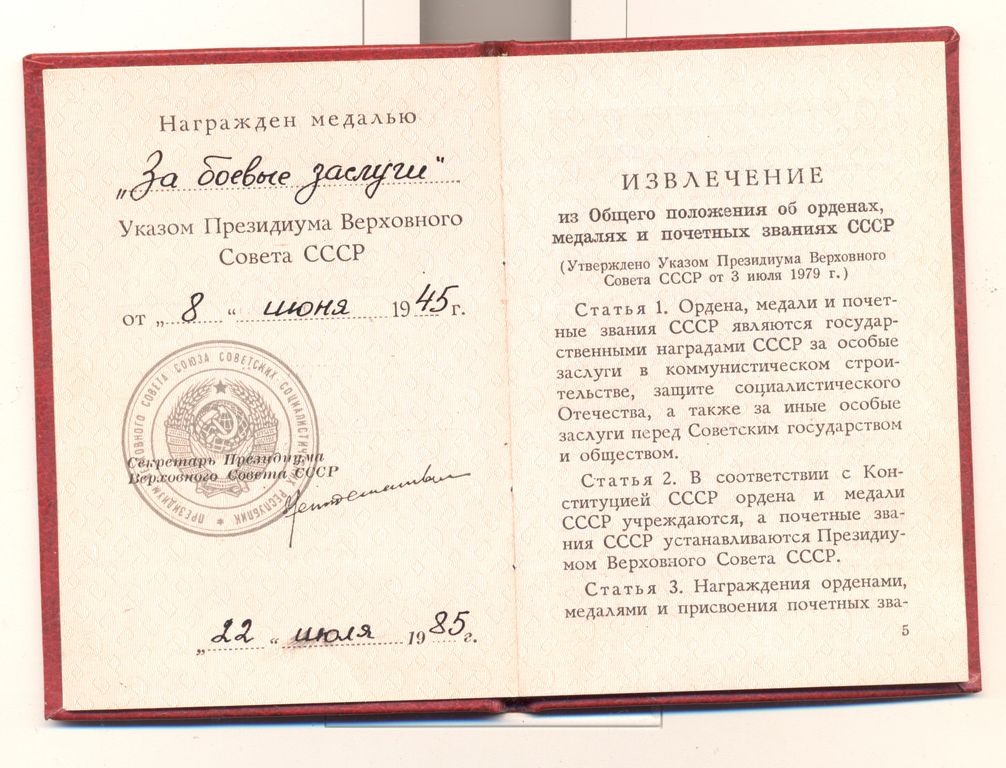 Награжден медалью
„За боевые заслуги"
Указом Президиума Верховного
Совета СССР
от „ 8 “ июня 1945 г.
ПРЕЗИДИУМ ВЕРХОВНОГО СОВЕТА СОЮЗА СОВЕТСКИХ СОЦИАЛИСТИЧЕСКИХ РЕСПУБЛИК
Секретарь Президиума
Верховного Совета СССР
„ 22 “ июля 1985 г.
ИЗВЛЕЧЕНИЕ
из Общего положения об орденах,
медалях и почетных званиях СССР
(Утверждено Указом Президиума Верховного
Совета СССР от 3 июля 1979 г.)
Статья 1. Ордена, медали и почет-
ные звания СССР являются государ-
ственными наградами СССР за особые
заслуги в коммунистическом строи-
тельстве, защите социалистического
Отечества, а также за иные особые
заслуги перед Советским государством
и обществом.
Статья 2. В соответствии с Кон-
ституцией СССР ордена и медали
СССР учреждаются, а почетные зва-
ния СССР устанавливаются Президиу-
мом Верховного Совета СССР.
Статья 3. Награждения орденами,
медалями и присвоения почетных зва-
5